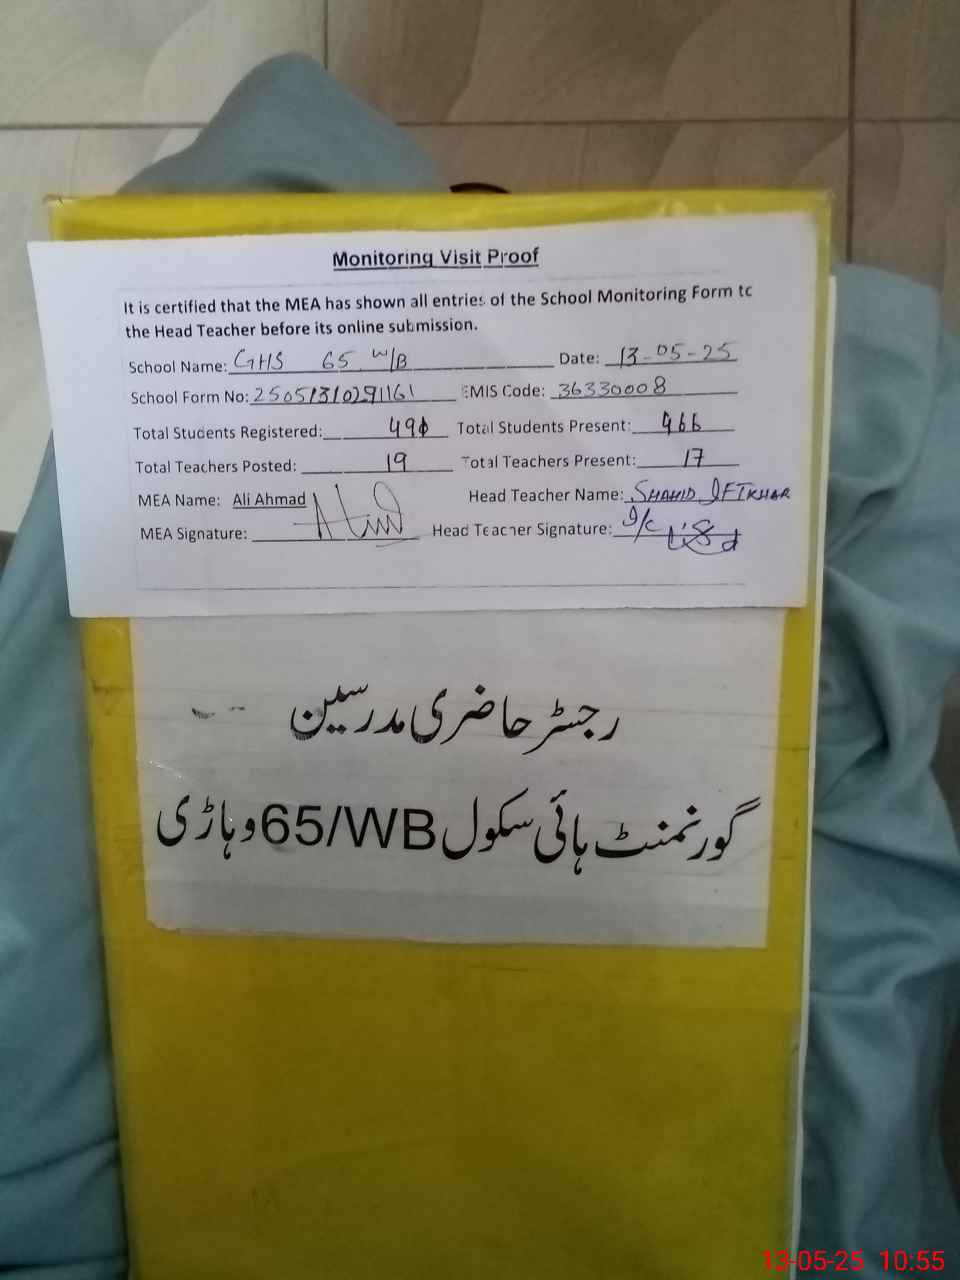 Monitoring Visit Proof
It is certified that the MEA has shown all entries of the School Monitoring Form to
the Head Teacher before its online submission.
School Name: GHS 65 W/B Date: 13-05-25
School Form No: 25051310291161 EMIS Code: 36330008
Total Students Registered: Total Students Present: 466
Total Teachers Posted: 19 Total Teachers Present: 17
MEA Name: Ali Ahmad Head Teacher Name: SHAHID IFTKHAR
MEA Signature: Head Teacher Signature: I/C
رجسٹر حاضری مدرسین
گورنمنٹ ہائی سکول 65/WB وہاڑی
13-05-25 10:55